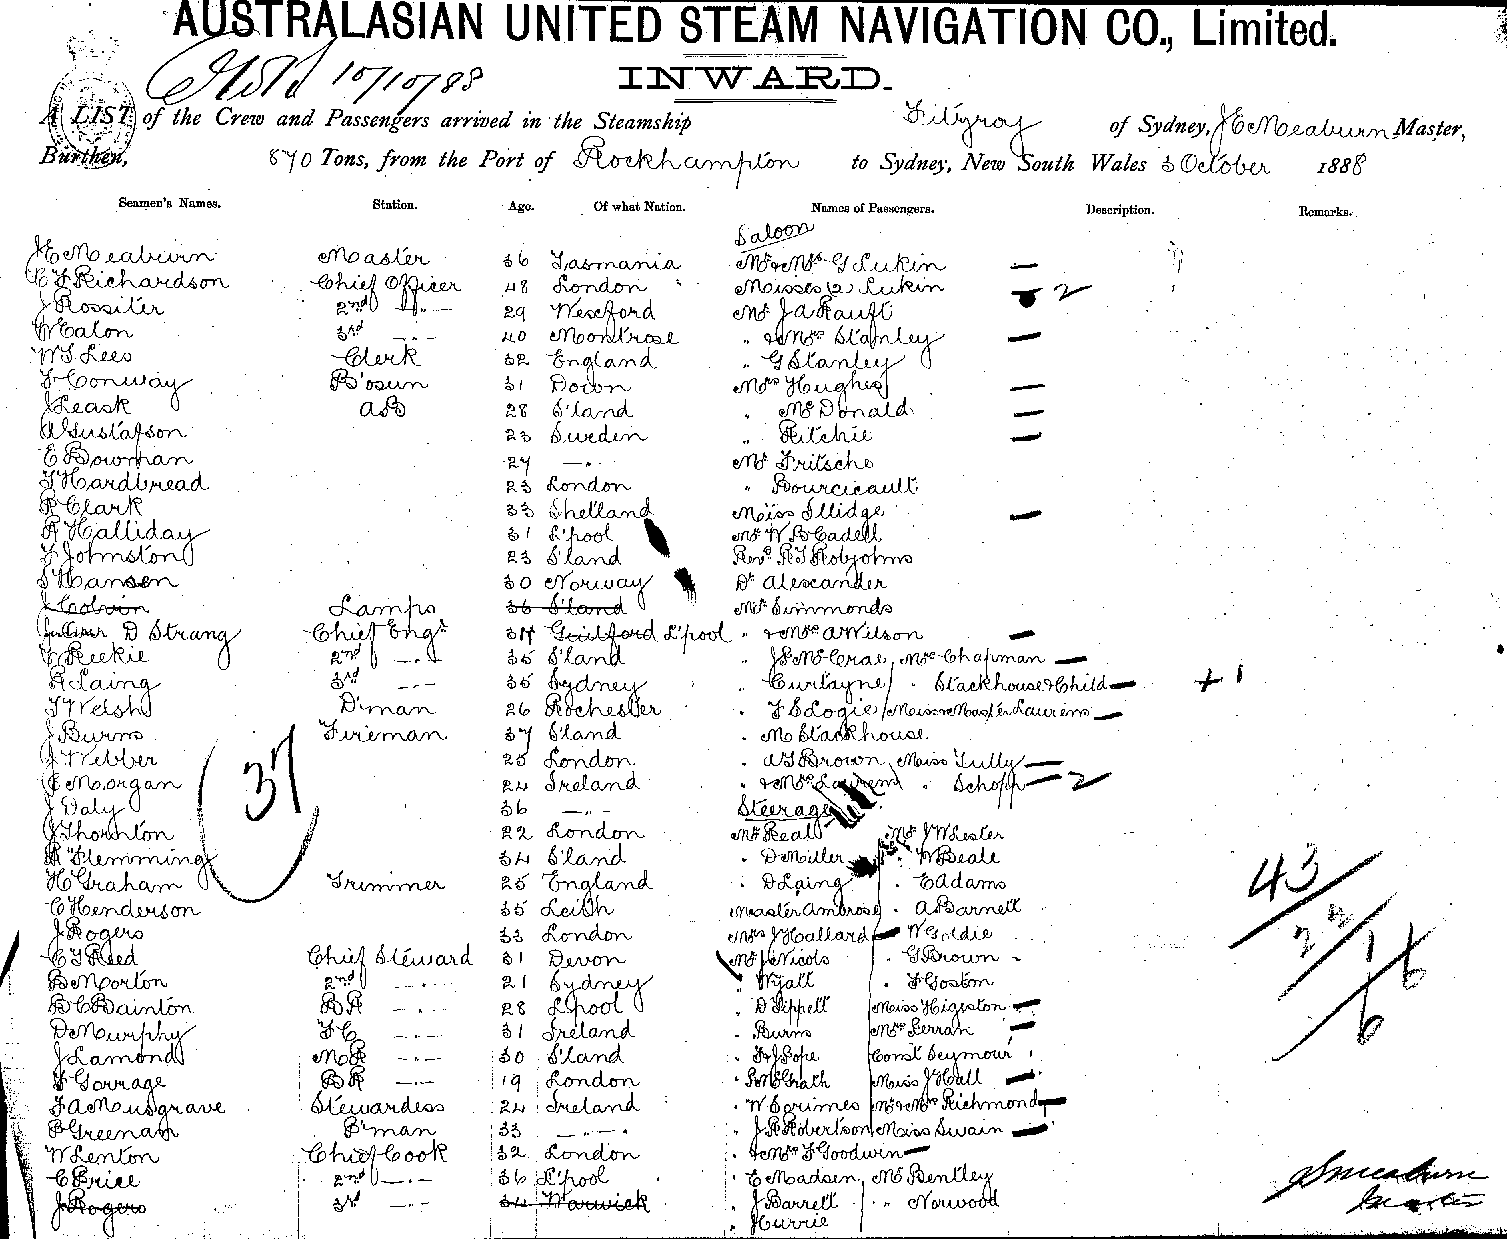 AUSTRALASIAN UNITED STEAM NAVIGATION CO., Limited.
10/10/88 INWARD.
A LIST of the Crew and Passengers arrived in the Steamship Fitzroy of Sydney, J E Meaburn Master,
Burthen, 870 Tons, from the Port of Rockhampton to Sydney, New South Wales 3 October 1888
Seamen's Names. Station. Age. Of what Nation. Names of Passengers. Description. Remarks.
Saloon
J E Meaburn Master 36 Tasmania Mr & Mrs G Lukin —
C F Richardson Chief Officer 48 London Misses (2) Lukin 2
J Rossiter 2nd —"— 29 Wexford Mr J A Rauft
W Eaton 3rd —"— 40 Montrose " & Mrs Stanley —
W S Lees Clerk 32 England " G Stanley
F Conway B'osun 31 Devon Mrs Hughes —
J Leask AB 28 S'land " McDonald —
A Gustafson 23 Sweden " Ritchie —
E Bowman 27 —"— Mr Fritsche
T Hardbread 23 London " Bourcicault
R Clark 33 Shetland Miss Illidge —
R Halliday 31 L'pool Mr W B Cadell
F Johnston 23 S'land Revd R T Robjohns
S Hansen 30 Norway Dr Alexander
J Colvin Lamps 36 S'land Mr Simmonds
D Strang Chief Engr 34 Guilford L'pool " & Mrs A Wilson —
Reekie 2nd —"— 35 S'land " J S McCrae, Mrs Chapman —
R Laing 3rd —"— 35 Sydney " Curlayne / " Stackhouse & Child — + 1
T Welsh D'man 26 Rochester " F E Logie / Miss & Master Laurens —
J Burns Fireman 37 S'land " M Stackhouse
J Webber 25 London " A G Brown, Miss Tully —
E Morgan 24 Ireland " & Mrs Laurens " Schopp — 2
J Daly 36 —"— Steerage
J Thornton 22 London Mr Real Mr J W Lester
37
R Flemming 34 S'land " D Miller " W Beale
H Graham Trimmer 25 England " D Laing " E Adams
C Henderson 35 Leith Master Ambrose " A Barnett
J Rogers 33 London Mrs J Hallard — " W Goldie
C F Reed Chief Steward 31 Devon Mr J Nicols " G Brown
B Morton 2nd —"— 21 Sydney " Wyatt " F Goston
B C Bainton BR —"— 28 L'pool " D Sippett Miss Higeston —
D Murphy FC —"— 31 Ireland " Burns Mrs Lerran —
J Lamond MR —"— 30 S'land " F & J Pope Const Seymour
F Gorrage BR —"— 19 London " S McGrath Miss J Hall —
F A Musgrave Stewardess 24 Ireland " W Scrimes Mr & Mrs Richmond —
P Greenan P'man 33 —"— " J R Robertson Miss Swain —
W Lenton Chief Cook 32 London " & Mrs F Goodwin —
C Price 2nd —"— 36 L'pool " E Madsen, Mr Bentley
J Rogers 3rd —"— 34 Warwick " J Barrett " " Norwood
" J Currie
43
22
1 6
6
J E Meaburn
Master